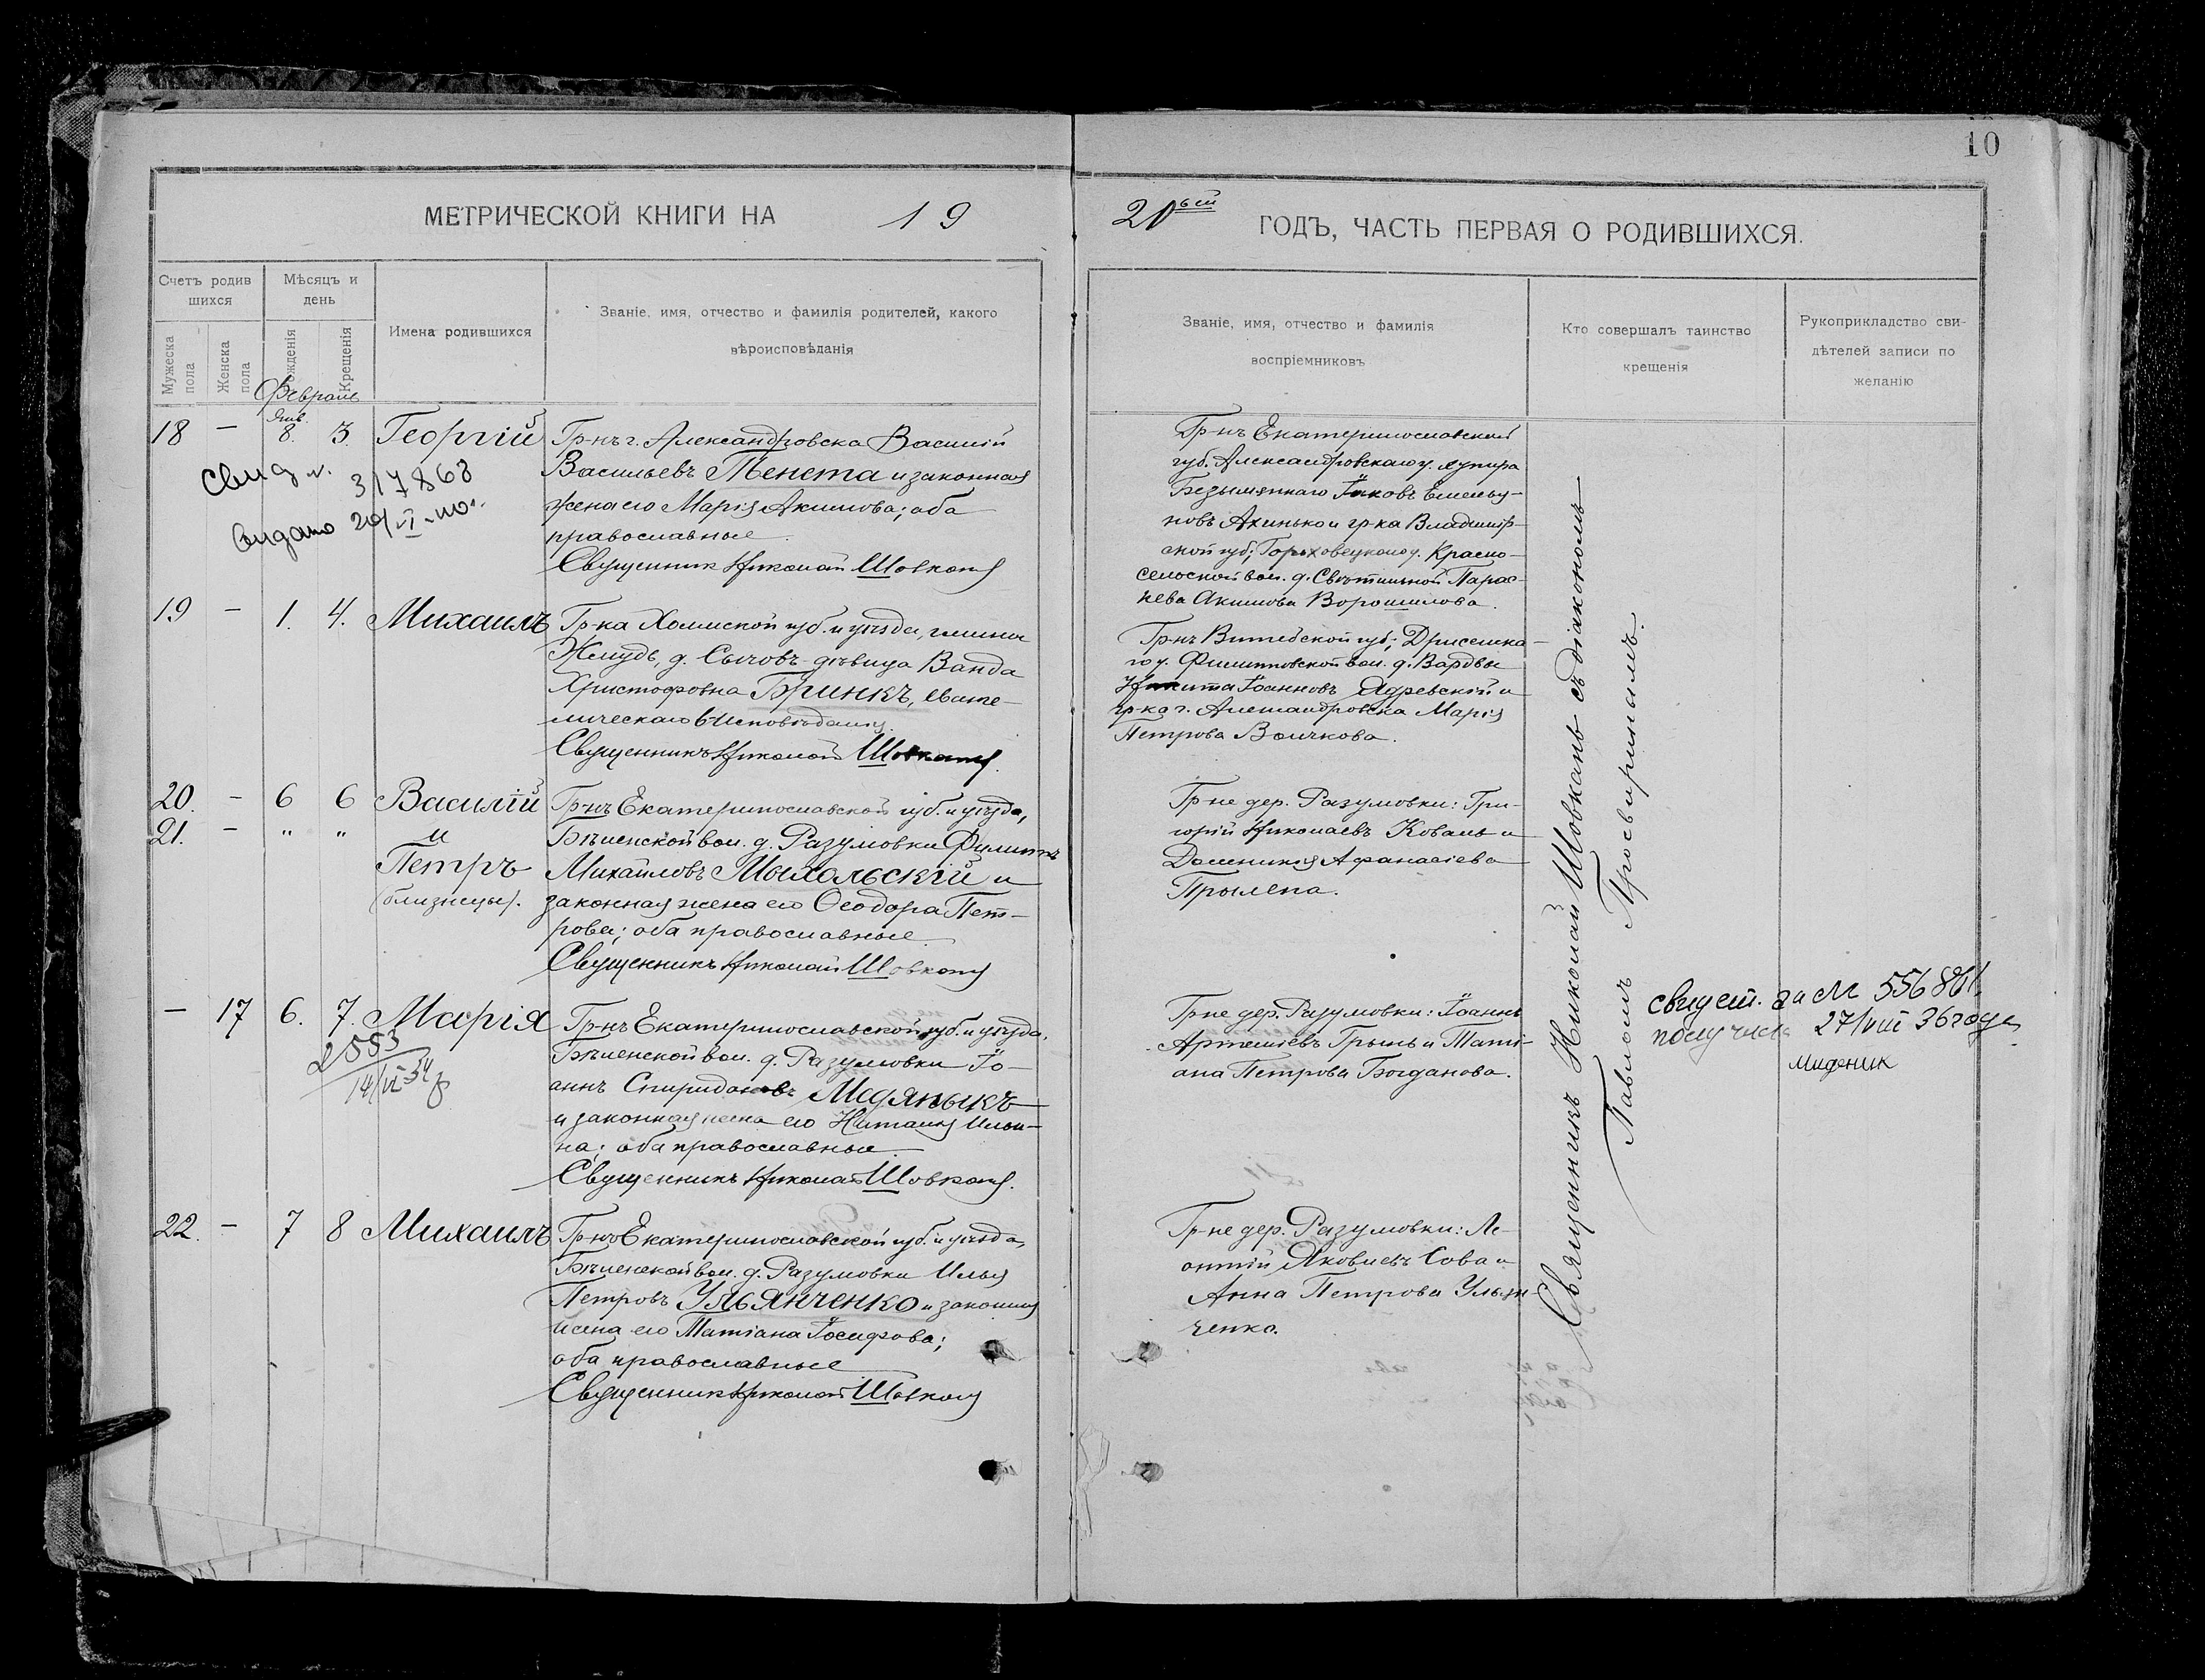 10
МЕТРИЧЕСКОЙ КНИГИ НА 19
20ый ГОДЪ, ЧАСТЬ ПЕРВАЯ О РОДИВШИХСЯ.
Счетъ родив
шихся
Мужеска
пола
Женска
пола
Мѣсяцъ и
день
Рожденія
Крещенія
Имена родившихся
Званіе, имя, отчество и фамилія родителей, какого
вѣроисповѣданія
Званіе, имя, отчество и фамилія
воспріемниковъ
Кто совершалъ таинство
крещенія
Рукоприкладство сви-
дѣтелей записи по
желанію
Февраль
Янв.
18 – 8. 3. Георгій
Свид. 317868
Видано
Гр-нъ г. Александровска Василій
Васильевъ Пенета и законная
жена его Марія Акимова; оба
православные.
Священник Николай Шовкань
Гр-нъ Екатеринославской
губ. Александровскаго у. хутора
Безымяннаго Іаковъ Емелья-
новъ Ахинько и гр-ка Владимір-
ской губ; Гороховецкаго у. Красно-
сельской вол. д. Свѣтильной Парас-
кева Акимова Ворошилова.
19 – 1. 4. Михаилъ
Гр-ка Холмской губ. и уѣзда, гмины
Жмудь, д. Сычовъ дѣвица Ванда
Христофовна Бринкъ, еванге-
лическаго в-исповѣданія.
Священникъ Николай Шовкань.
Гр-нъ Витебской губ; Дриссенска-
го у. Филипповской вол. д.
Никита Іоанновъ Ядревскій и
гр-ка г. Александровска Марія
Петрова Волчкова.
20. – 6 6 Василій
21. – " " и
Петръ
(близнецы).
Гр-нъ Екатеринославской губ. и уѣзда,
Бѣленской вол. д. Разумовки Филиппъ
Михайловъ Мыхольскій и
законная жена его Ѳеодора Пет-
рова; оба православные.
Священникъ Николай Шовкань
Гр-не дер. Разумовки: Гри-
горій Николаевъ Коваль и
Домникія Афанасіева
Прылепа.
– 17 6. 7. Марія
2553
14/VI 34
Гр-нъ Екатеринославской губ. и уѣзда,
Бѣленской вол. д. Разумовки Іо-
аннъ Спиридоновъ Медяныкъ
и законная жена его Наталія Ильи-
на; оба православные
Священникъ Николай Шовкань.
Гр-не дер. Разумовки: Іоаннъ
Артеміевъ Грынь и Таті-
ана Петрова Богданова.
свидет. за № 556861.
получила 27/VIII 36 года
Миденик
22. – 7 8 Михаилъ
Гр-нъ Екатеринославской губ. и уѣзда,
Бѣленской вол. д. Разумовки Илья
Петровъ Ульянченко и законная
жена его Татіана Іосифова;
оба православные
Священник Николай Шовкань
Гр-не дер. Разумовки: Ле-
онтій Яковлевъ Сова и
Анна Петрова Ульян-
ченко.
Священникъ Николай Шовкань съ діакономъ
Павломъ Просвиринымъ.